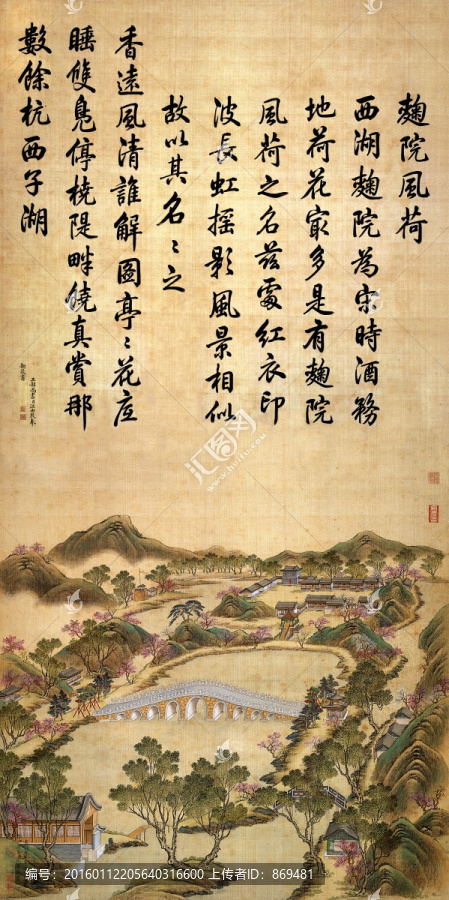 麹院風荷
西湖麹院為宋時酒務
地荷花寂多是有麹院
風荷之名茲處紅衣印
波長虹搖影風景相似
故以其名〻之
香遠風清誰解圖亭〻花底
睡雙鳬停橈隄畔饒真賞那
數餘杭西子湖
工部尚書臣汪由敦奉
勅敬書
编号：20160112205640316600 上传者ID：869481